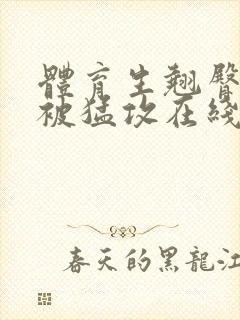 體育生翹臀
被猛攻在綫
春天的黑龍江